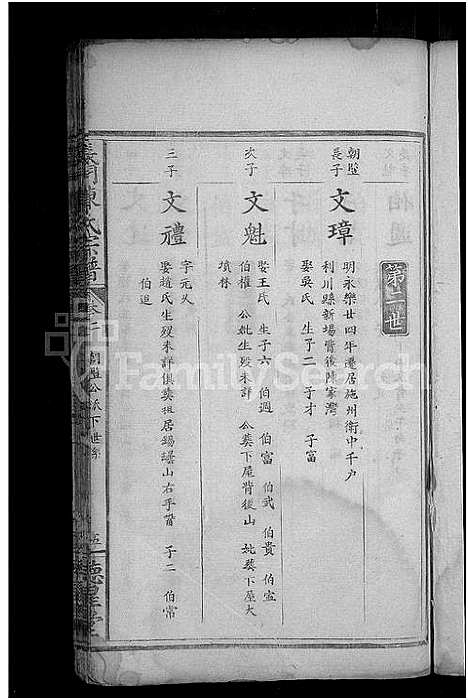 第二世
朝璧長子
文璋
明永樂廿四年遷居施州衛中千户
利川縣新場背後陳家灣
娶吳氏 生子二 子才 子富
次子
文魁
娶王氏 生子六 伯週 伯富 伯武 伯貴 伯宣
伯權 公妣生殁未詳 公葬下屋背後山 妣葬下屋大
墳林
三子
文禮
字元火
娶趙氏生殁未詳俱葬祖居錫
山右手
子二 伯常
伯追
義門陳氏宗譜
卷二
五
德星堂
FamilySearch